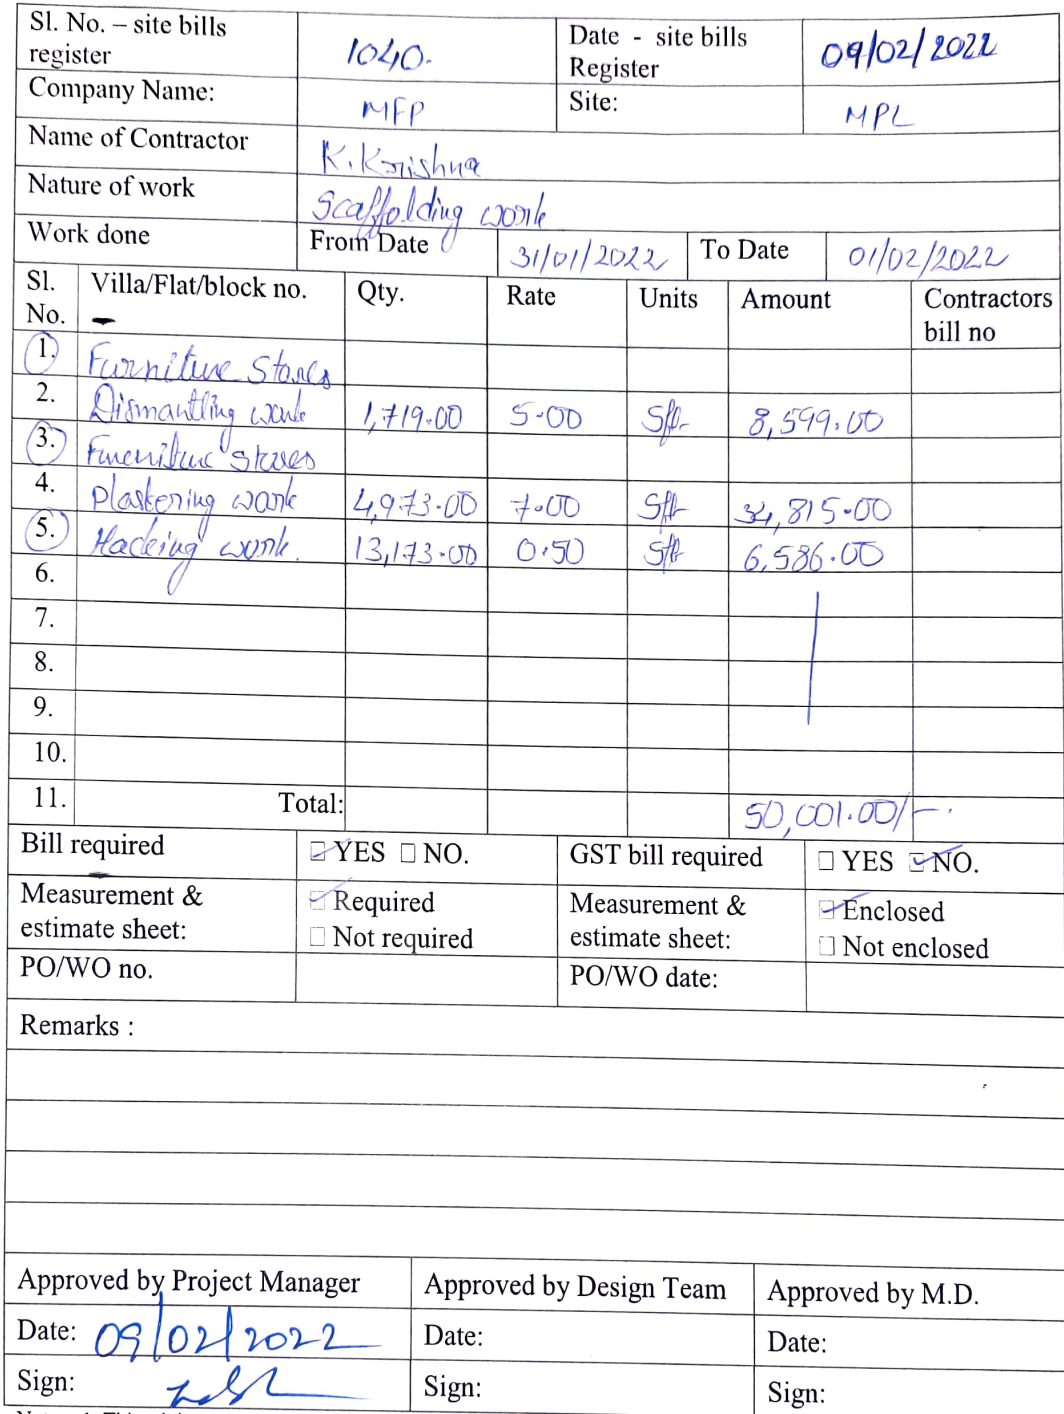 Sl. No. – site bills register 1040. Date - site bills Register 09/02/2022
Company Name: MFP Site: MPL
Name of Contractor K. Krishna
Nature of work Scaffolding work
Work done From Date 31/01/2022 To Date 01/02/2022
Sl. No. Villa/Flat/block no. Qty. Rate Units Amount Contractors bill no
1. Furniture Stores
2. Dismantling work 1,719.00 5.00 Sft 8,599.00
3. Furniture Stores
4. Plastering work 4,973.00 7.00 Sft 34,815.00
5. Hacking work. 13,173.00 0.50 Sft 6,586.00
6.
7.
8.
9.
10.
11. Total: 50,001.00/-
Bill required YES NO. GST bill required YES NO.
Measurement & estimate sheet: Required Measurement & estimate sheet: Enclosed
Not required Not enclosed
PO/WO no. PO/WO date:
Remarks :
Approved by Project Manager Approved by Design Team Approved by M.D.
Date: 09/02/2022 Date: Date:
Sign: Sign: Sign: